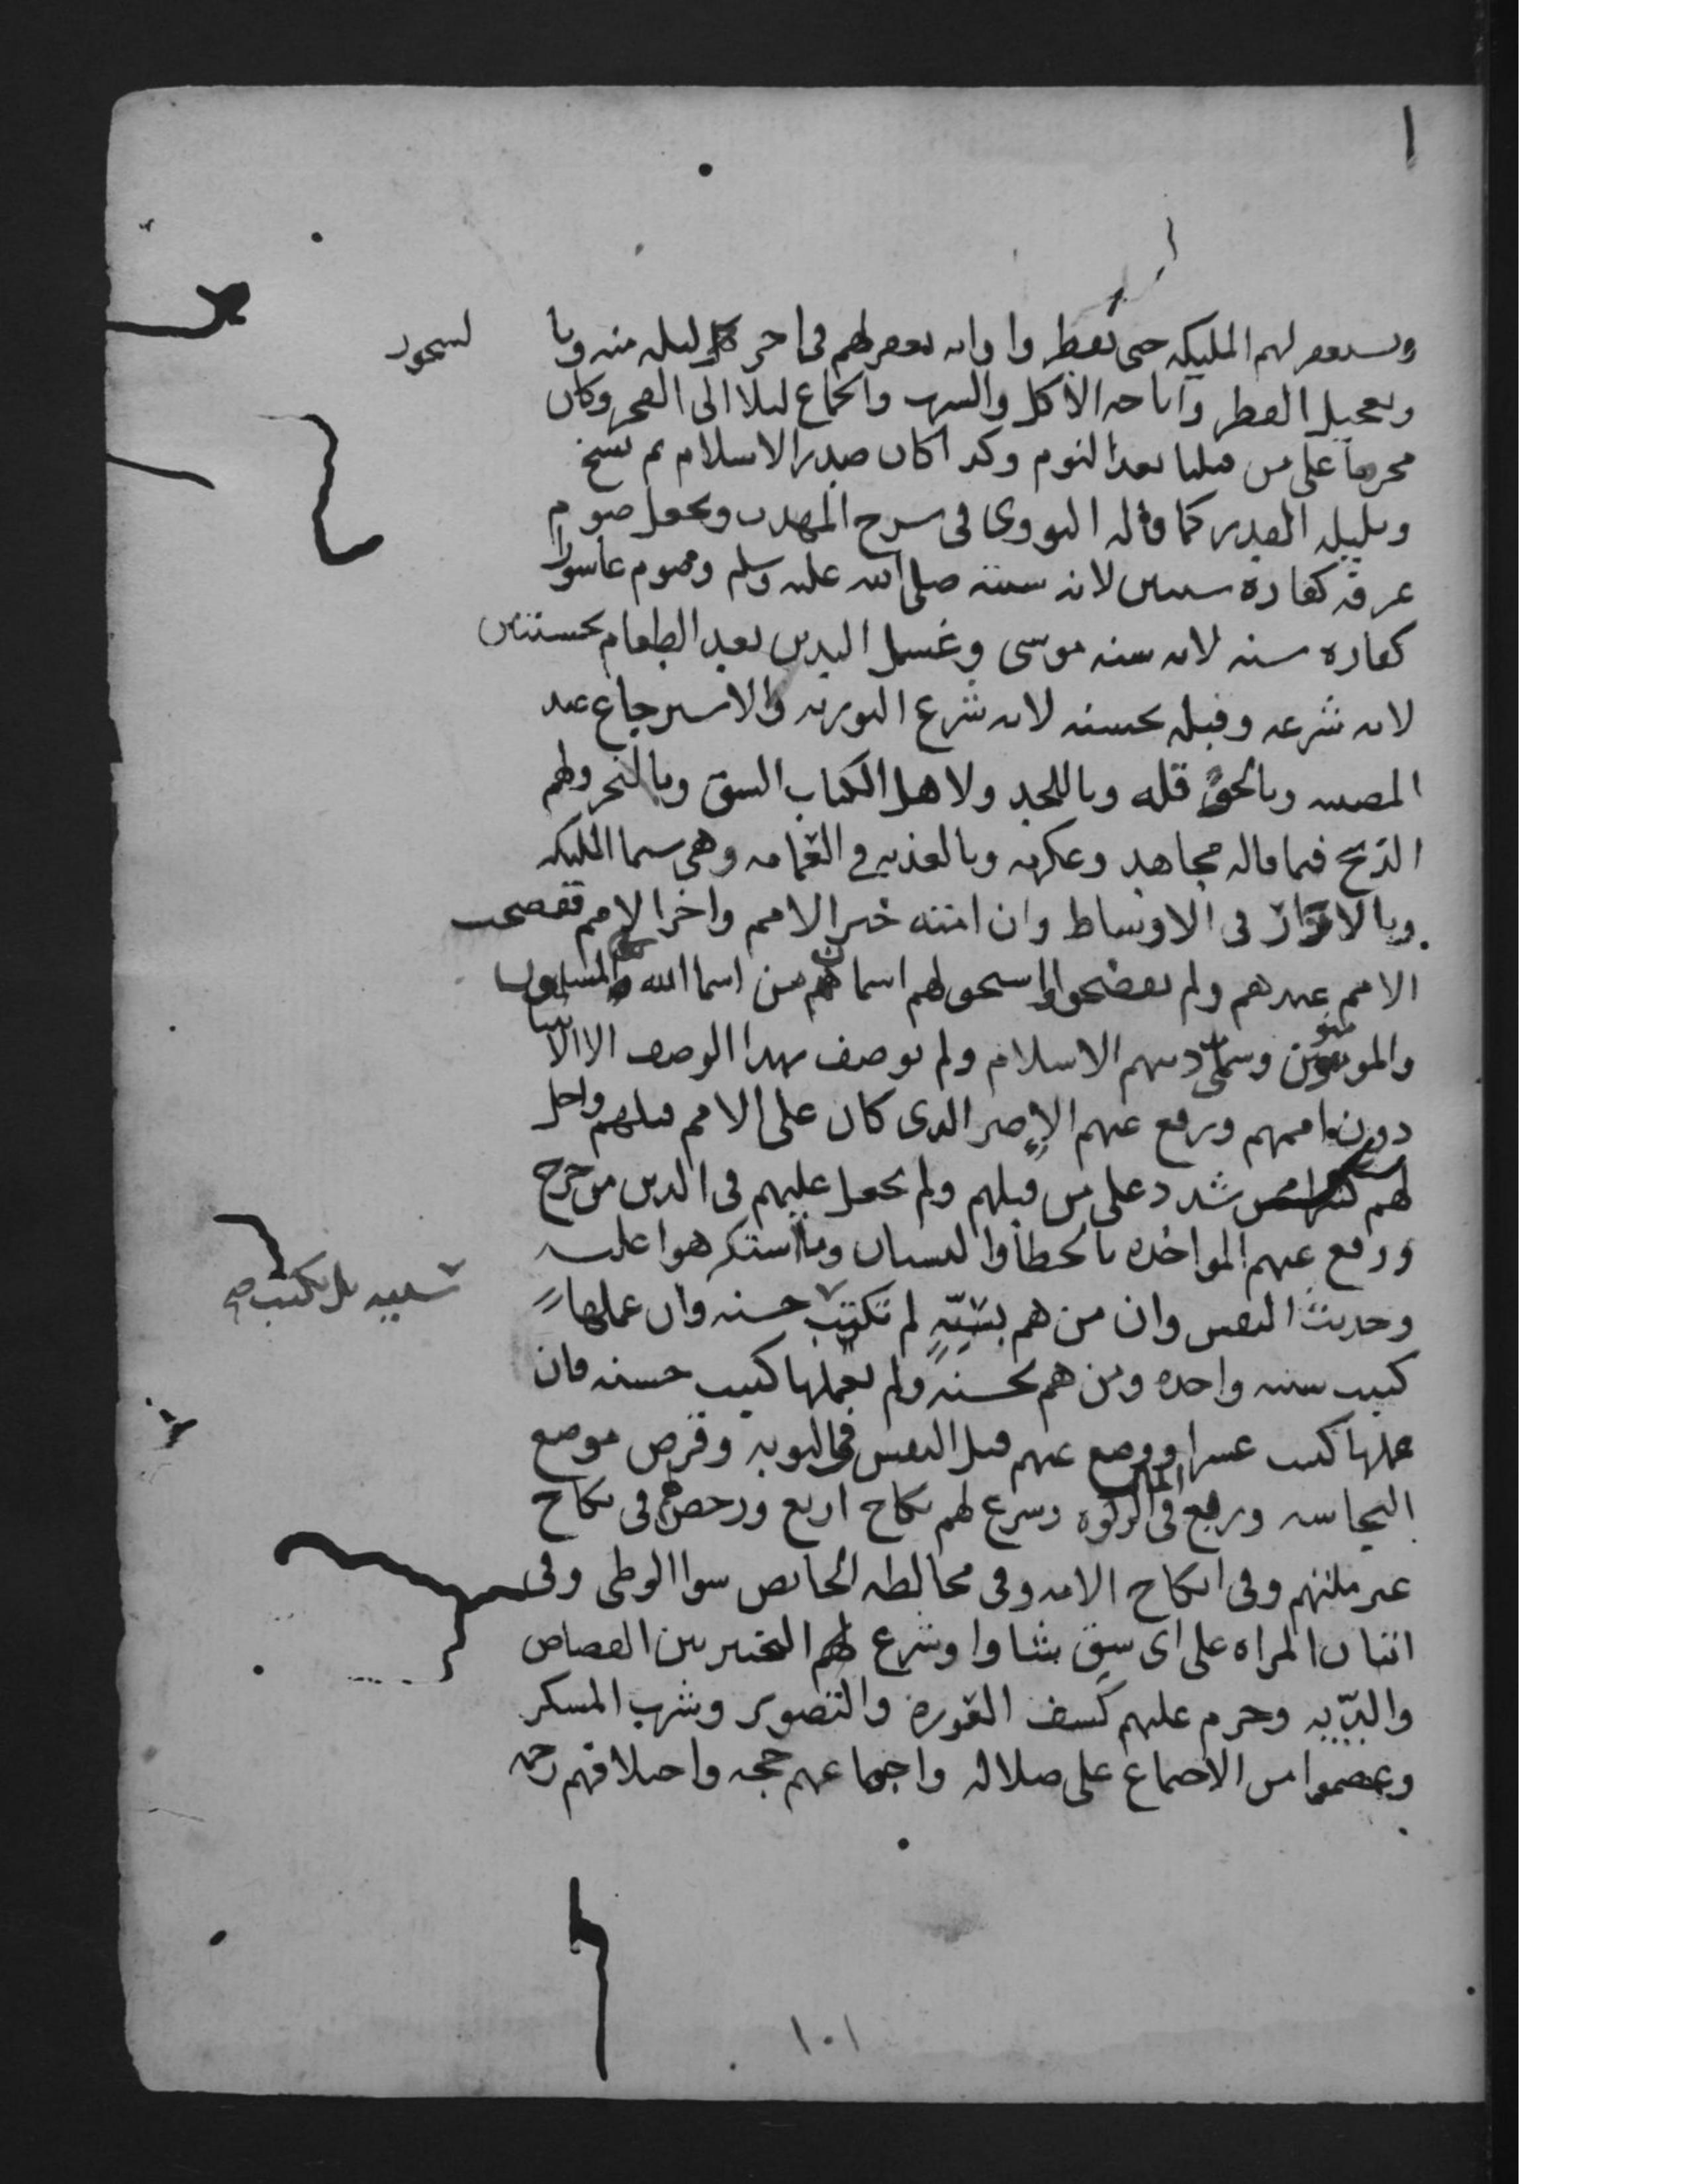 ا
وتستغفر لهم المليكه حتى تفطروا وانه يغفر لهم في اخر كل ليله منه وبا لسحور
وتعجيل الفطر واباحه الاكل والشرب والجماع ليلا الى الفجر وكان
محرما على من قبلنا بعد النوم وكذا كان صدر الاسلام ثم نسخ
وبليله القدر كما قاله النووي في شرح المهذب وبجعل صوم
عرفه كفاره سنتين لانه سنته صلى الله عليه وسلم وصوم عاشورا
كفاره سنه لانه سنه موسى وغسل اليدين بعد الطعام بحسنتين
لانه شرعه وقبله بحسنه لانه شرع التوريه والاسترجاع عند
المصيبه وبالحوقله وباللحد ولاهل الكتاب الشق وبالنحر ولهم
الذبح فيما قاله مجاهد وعكرمه وبالعذبه في العمامه وهي سيما المليكه
وبالاتزار في الاوساط وان امته خير الامم واخر الامم ففضحت
الامم عندهم ولم يفضحوا واشتق لهم اسمان من اسما الله المسلمون
والمومنون وسمي دينهم الاسلام ولم يوصف بهذا الوصف الا الانبيا
دون اممهم ورفع عنهم الاصر الذي كان على الامم قبلهم واحل
لهم كثيرا مما شدد على من قبلهم ولم يجعل عليهم في الدين من حرج
ورفع عنهم المواخذه بالخطا والنسيان وما استكرهوا عليه
وحديث النفس وان من هم بسيئه لم تكتب حسنه وان عملها
سييه بل تكتب صح
كتبت سيئه واحده ومن هم بحسنه ولم يعملها كتبت حسنه فان
عملها كتبت عشرا ووضع عنهم قتل النفس في التوبه وقرض موضع
النجاسه وربع المال في الزكوه وشرع لهم نكاح اربع ورخص لهم في نكاح
غير ملتهم وفي انكاح الامه وفي مخالطه الحايض سوا الوطي وفي
اتيان المراه على اي شق شاوا وشرع لهم التخيير بين القصاص
والديه وحرم عليهم كشف العوره والتصوير وشرب المسكر
وعصموا من الاجتماع على ضلاله واجماعهم حجه واختلافهم رحمه
١٠١